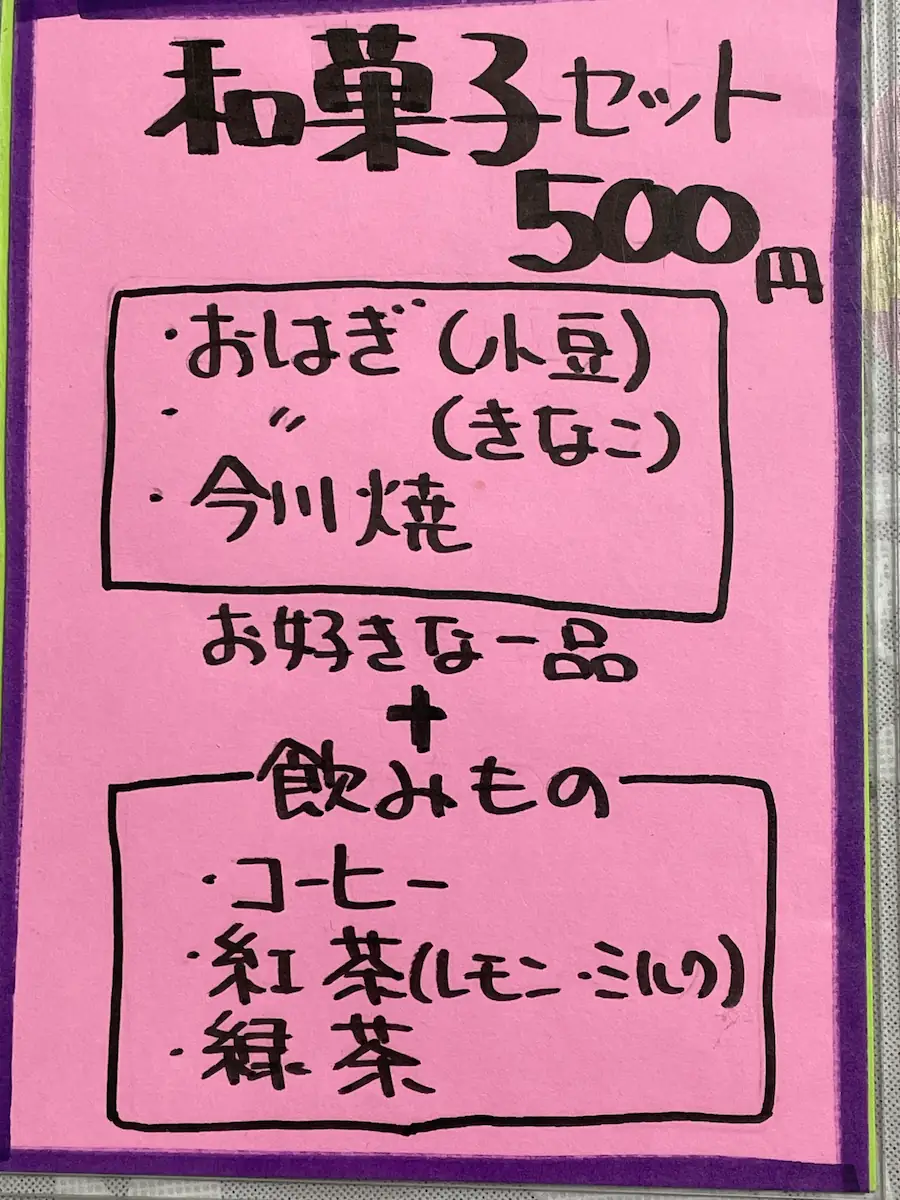 和菓子セット
500円
・おはぎ(小豆)
・ 〃 (きなこ)
・今川焼
お好きな一品
+
飲みもの
・コーヒー
・紅茶(レモン・ミルク)
・緑茶